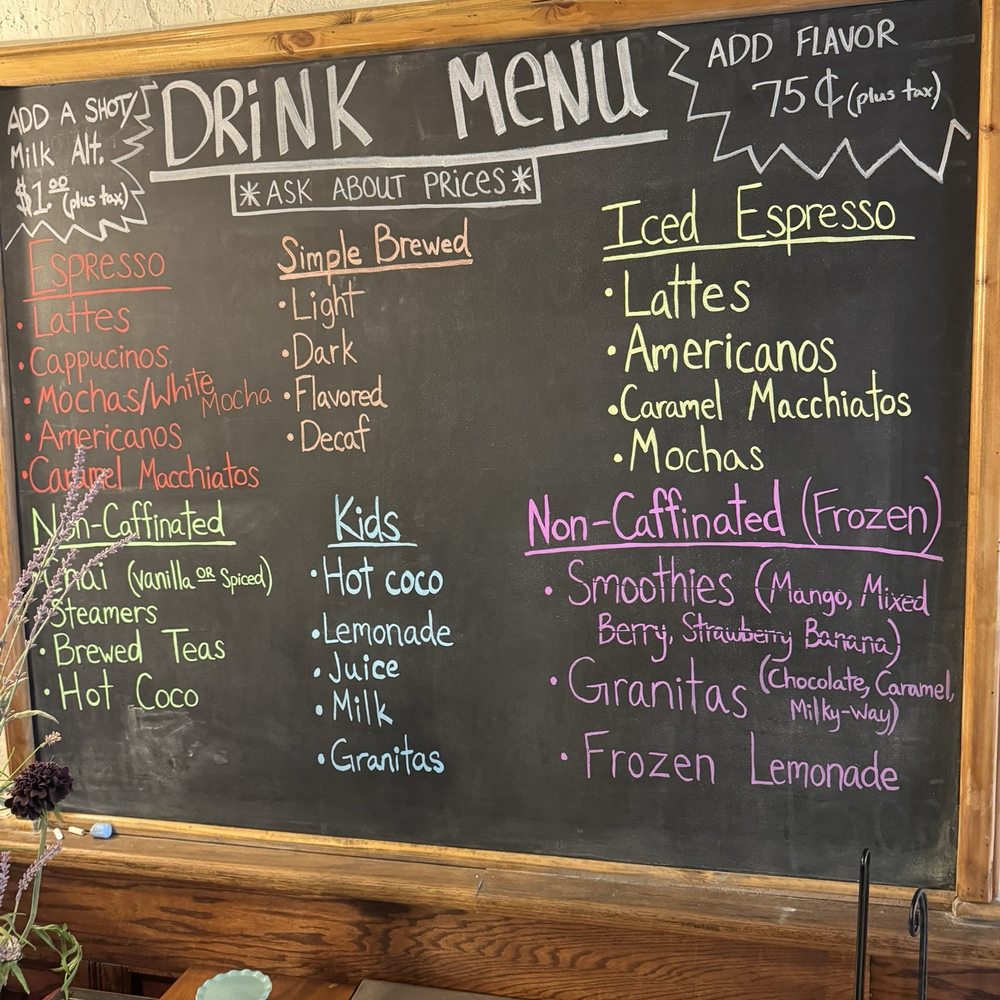 ADD A SHOT/
Milk Alt.
$1.00 (plus tax)
DRiNK MeNU
*ASK ABOUT PRiCES*
ADD FLAVOR
75¢ (plus tax)
Espresso
• Lattes
• Cappucinos
• Mochas/White Mocha
• Americanos
• Caramel Macchiatos
Simple Brewed
• Light
• Dark
• Flavored
• Decaf
Iced Espresso
• Lattes
• Americanos
• Caramel Macchiatos
• Mochas
Non-Caffinated
Chai (vanilla OR Spiced)
Steamers
• Brewed Teas
• Hot Coco
Kids
• Hot coco
• Lemonade
• Juice
• Milk
• Granitas
Non-Caffinated (Frozen)
• Smoothies (Mango, Mixed
Berry, Strawberry Banana)
• Granitas (Chocolate, Caramel,
Milky-Way)
• Frozen Lemonade